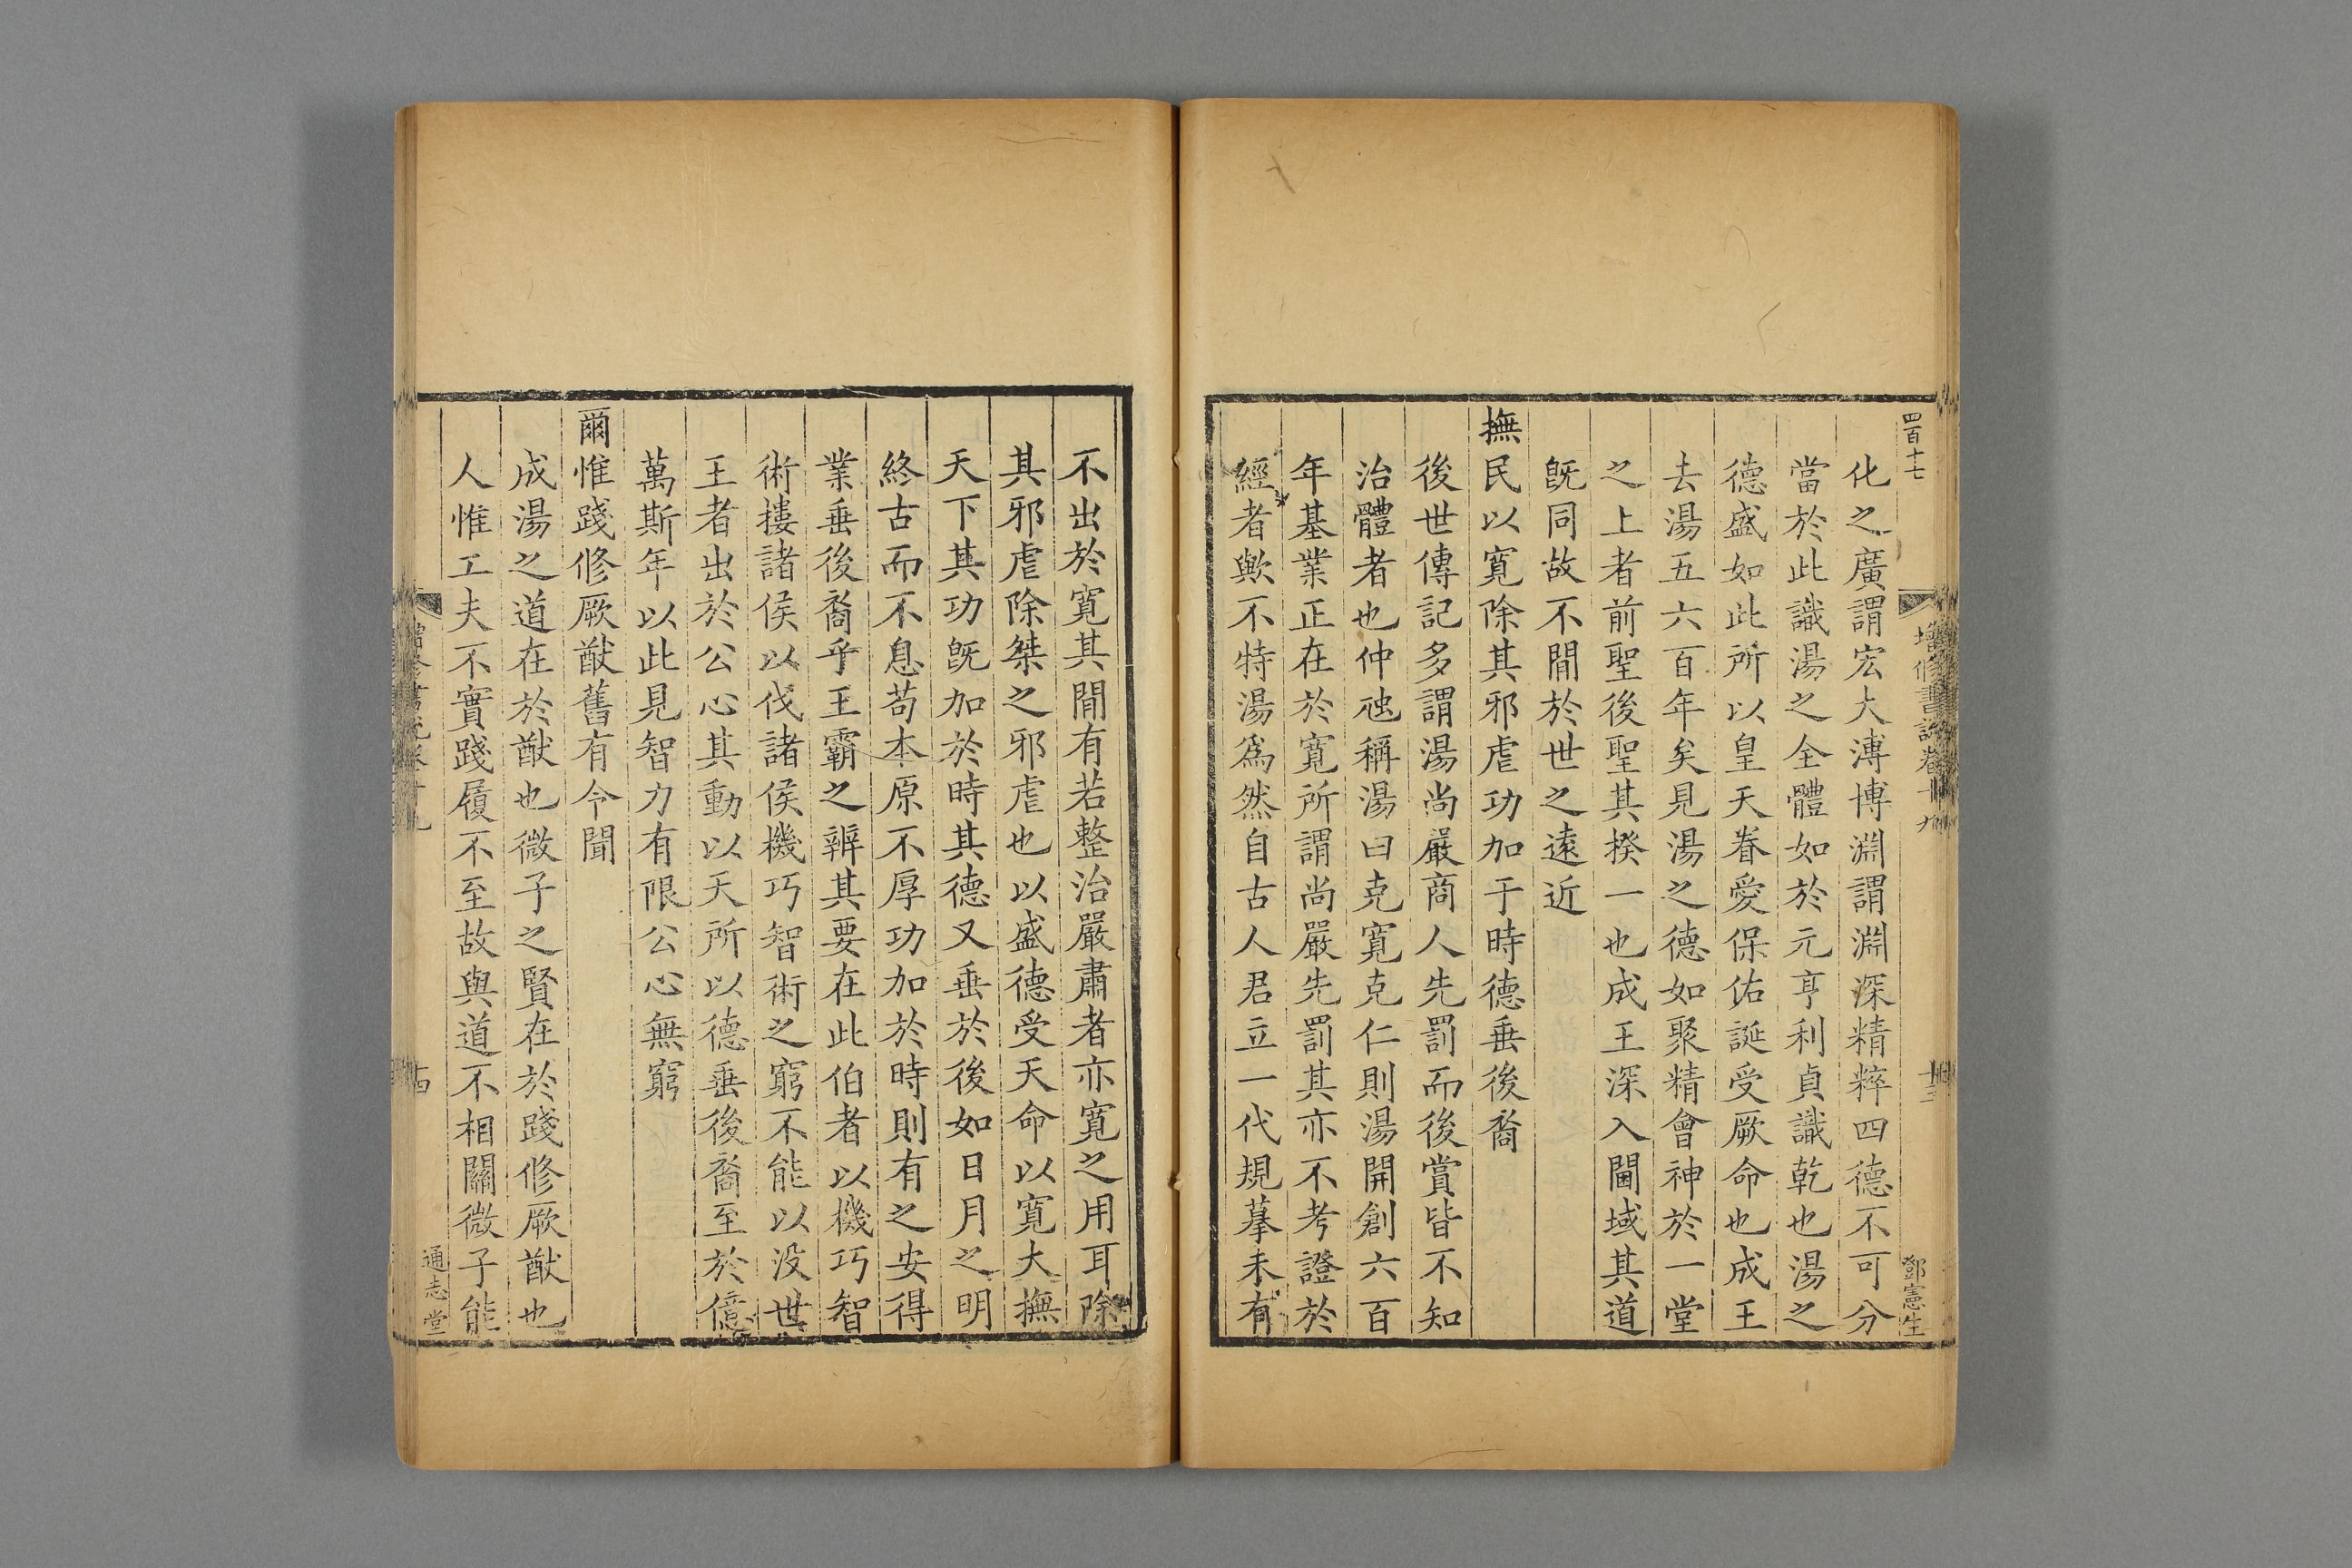 四百十七
增修書說卷十九
十三
鄧憲生
化之廣謂宏大溥博淵謂淵深精粹四德不可分
當於此識湯之全體如於元亨利貞識乾也湯之
德盛如此所以皇天眷愛保佑誕受厥命也成王
去湯五六百年矣見湯之德如聚精會神於一堂
之上者前聖後聖其揆一也成王深入閫域其道
旣同故不間於世之遠近
撫民以寬除其邪虐功加于時德垂後裔
後世傳記多謂湯尚嚴商人先罰而後賞皆不知
治體者也仲虺稱湯曰克寬克仁則湯開創六百
年基業正在於寬所謂尚嚴先罰其亦不考證於
經者歟不特湯爲然自古人君立一代規摹未有
不出於寬其間有若整治嚴肅者亦寬之用耳除
其邪虐除桀之邪虐也以盛德受天命以寬大撫
天下其功旣加於時其德又垂於後如日月之明
終古而不息苟本原不厚功加於時則有之安得
業垂後裔乎王霸之辨其要在此伯者以機巧智
術摟諸侯以伐諸侯機巧智術之窮不能以没世
王者出於公心其動以天所以德垂後裔至於億
萬斯年以此見智力有限公心無窮
爾惟踐修厥猷舊有令聞
成湯之道在於猷也微子之賢在於踐修厥猷也
人惟工夫不實踐履不至故與道不相關微子能
增修書說卷十九
十四
通志堂